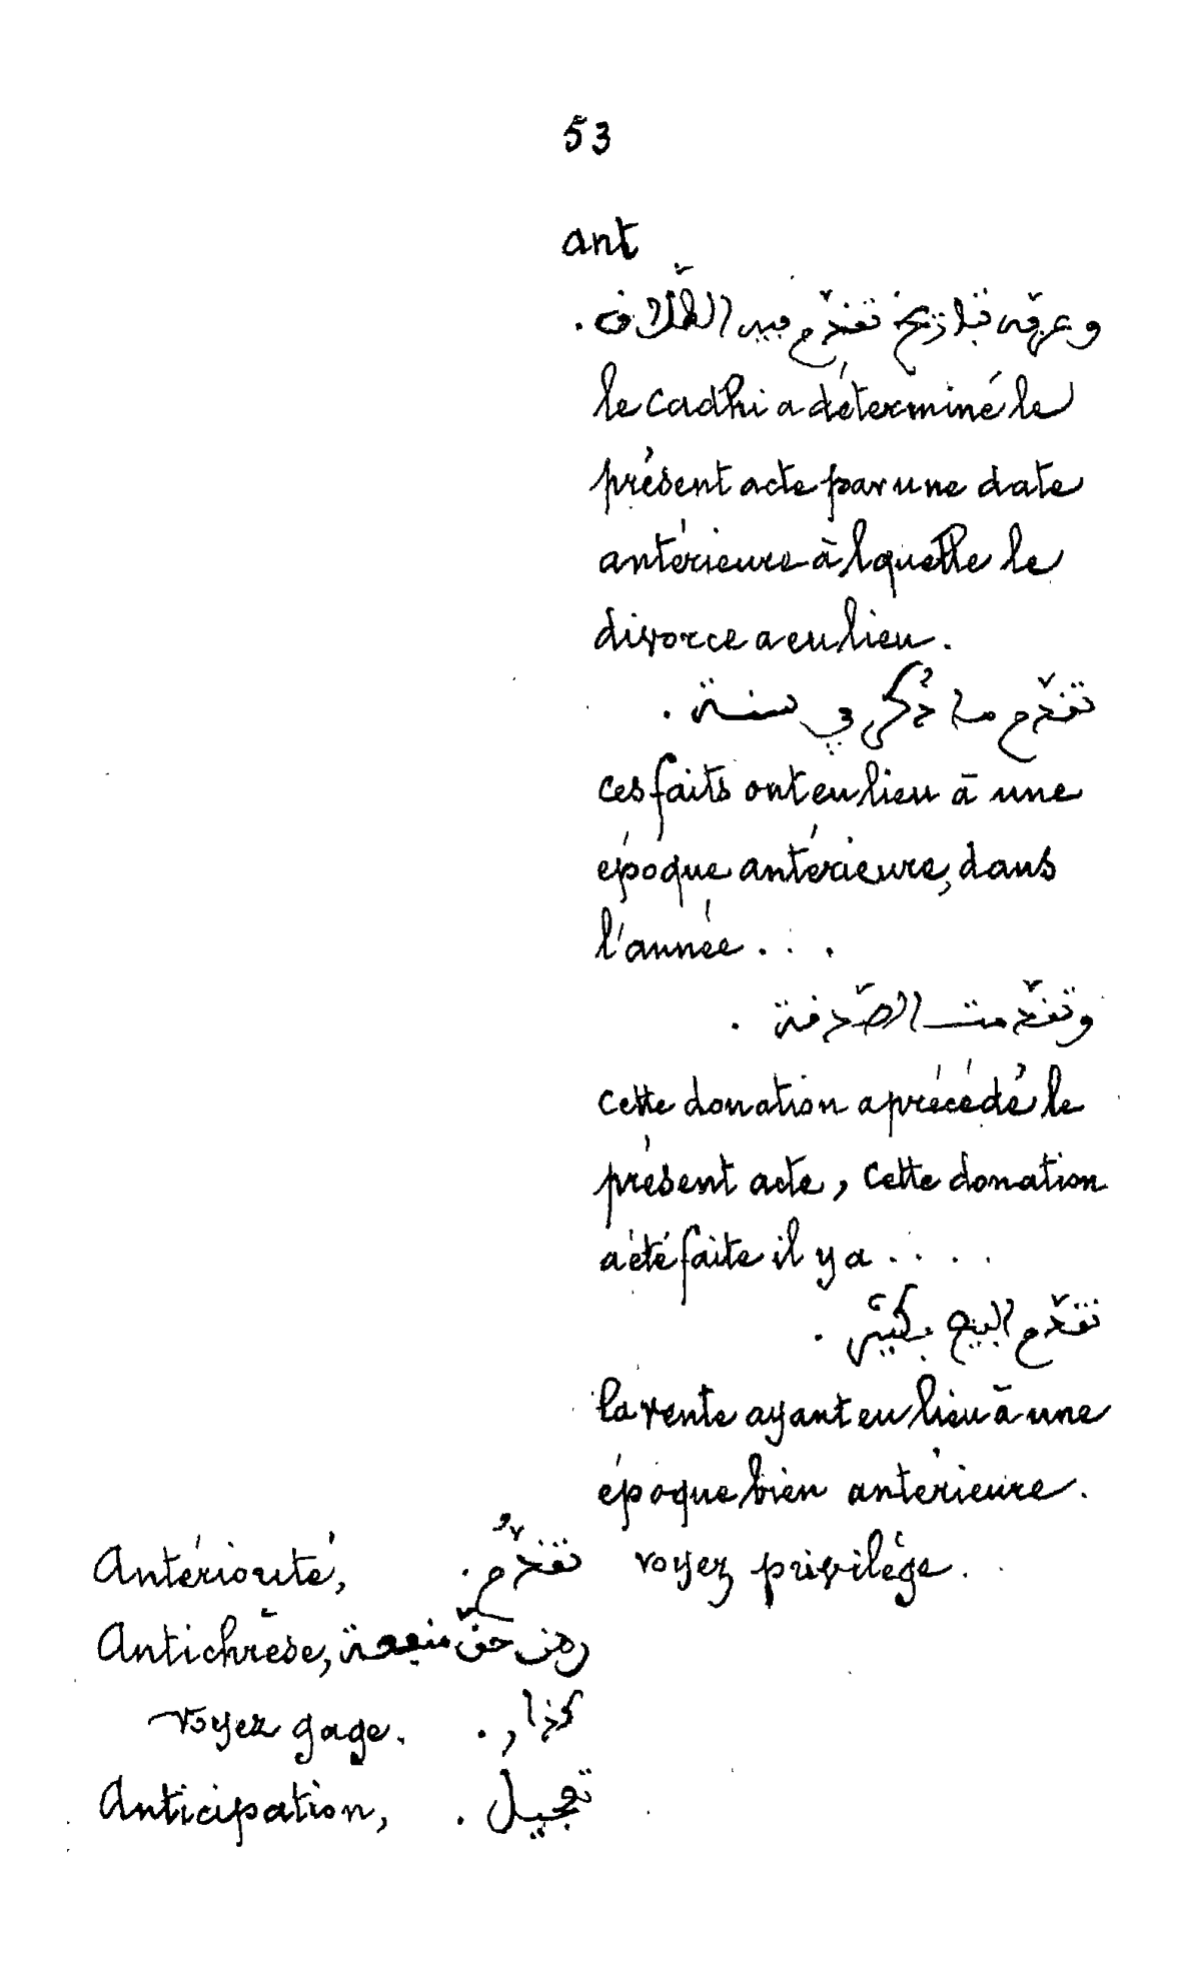 53
ant
وعرّفه بتاريخ تقدّم فيه الطّلاق.
le cadhi a déterminé le
présent acte par une date
antérieure à lquelle le
divorce a eu lieu.
تقدّم ما ذُكر في سنة.
ces faits ont eu lieu à une
époque antérieure, dans
l'année...
وتقدّمت الصّدقة.
cette donation a précédé le
présent acte, cette donation
a été faite il y a....
تقدّم البيع بكثير.
la vente ayant eu lieu à une
époque bien antérieure.
Antériorité, تقدّمٌ. voyez privilége.
Antichrèse, رهن حقّ منفعة
voyez gage. كذا,.
Anticipation, تعجيل.